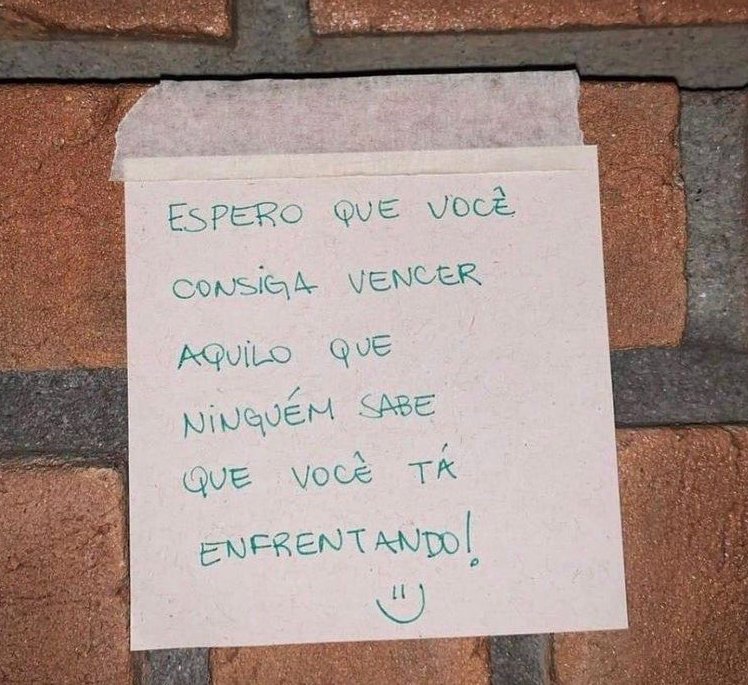 ESPERO QUE VOCÊ
CONSIGA VENCER
AQUILO QUE
NINGUÉM SABE
QUE VOCÊ TÁ
ENFRENTANDO!